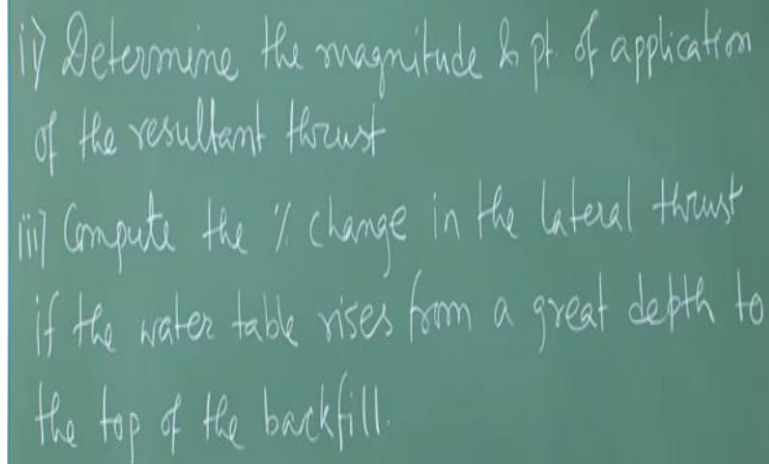 ii) Determine the magnitude & pt. of application
of the resultant thrust
iii) Compute the % change in the lateral thrust
if the water table rises from a great depth to
the top of the backfill.